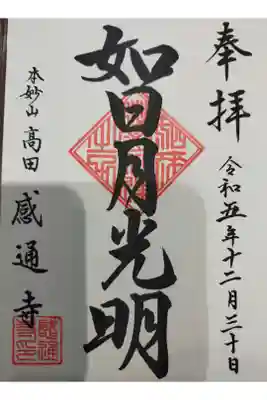 奉拝
令和五年十二月三十日
如日月光明
本妙山
高田
感通寺